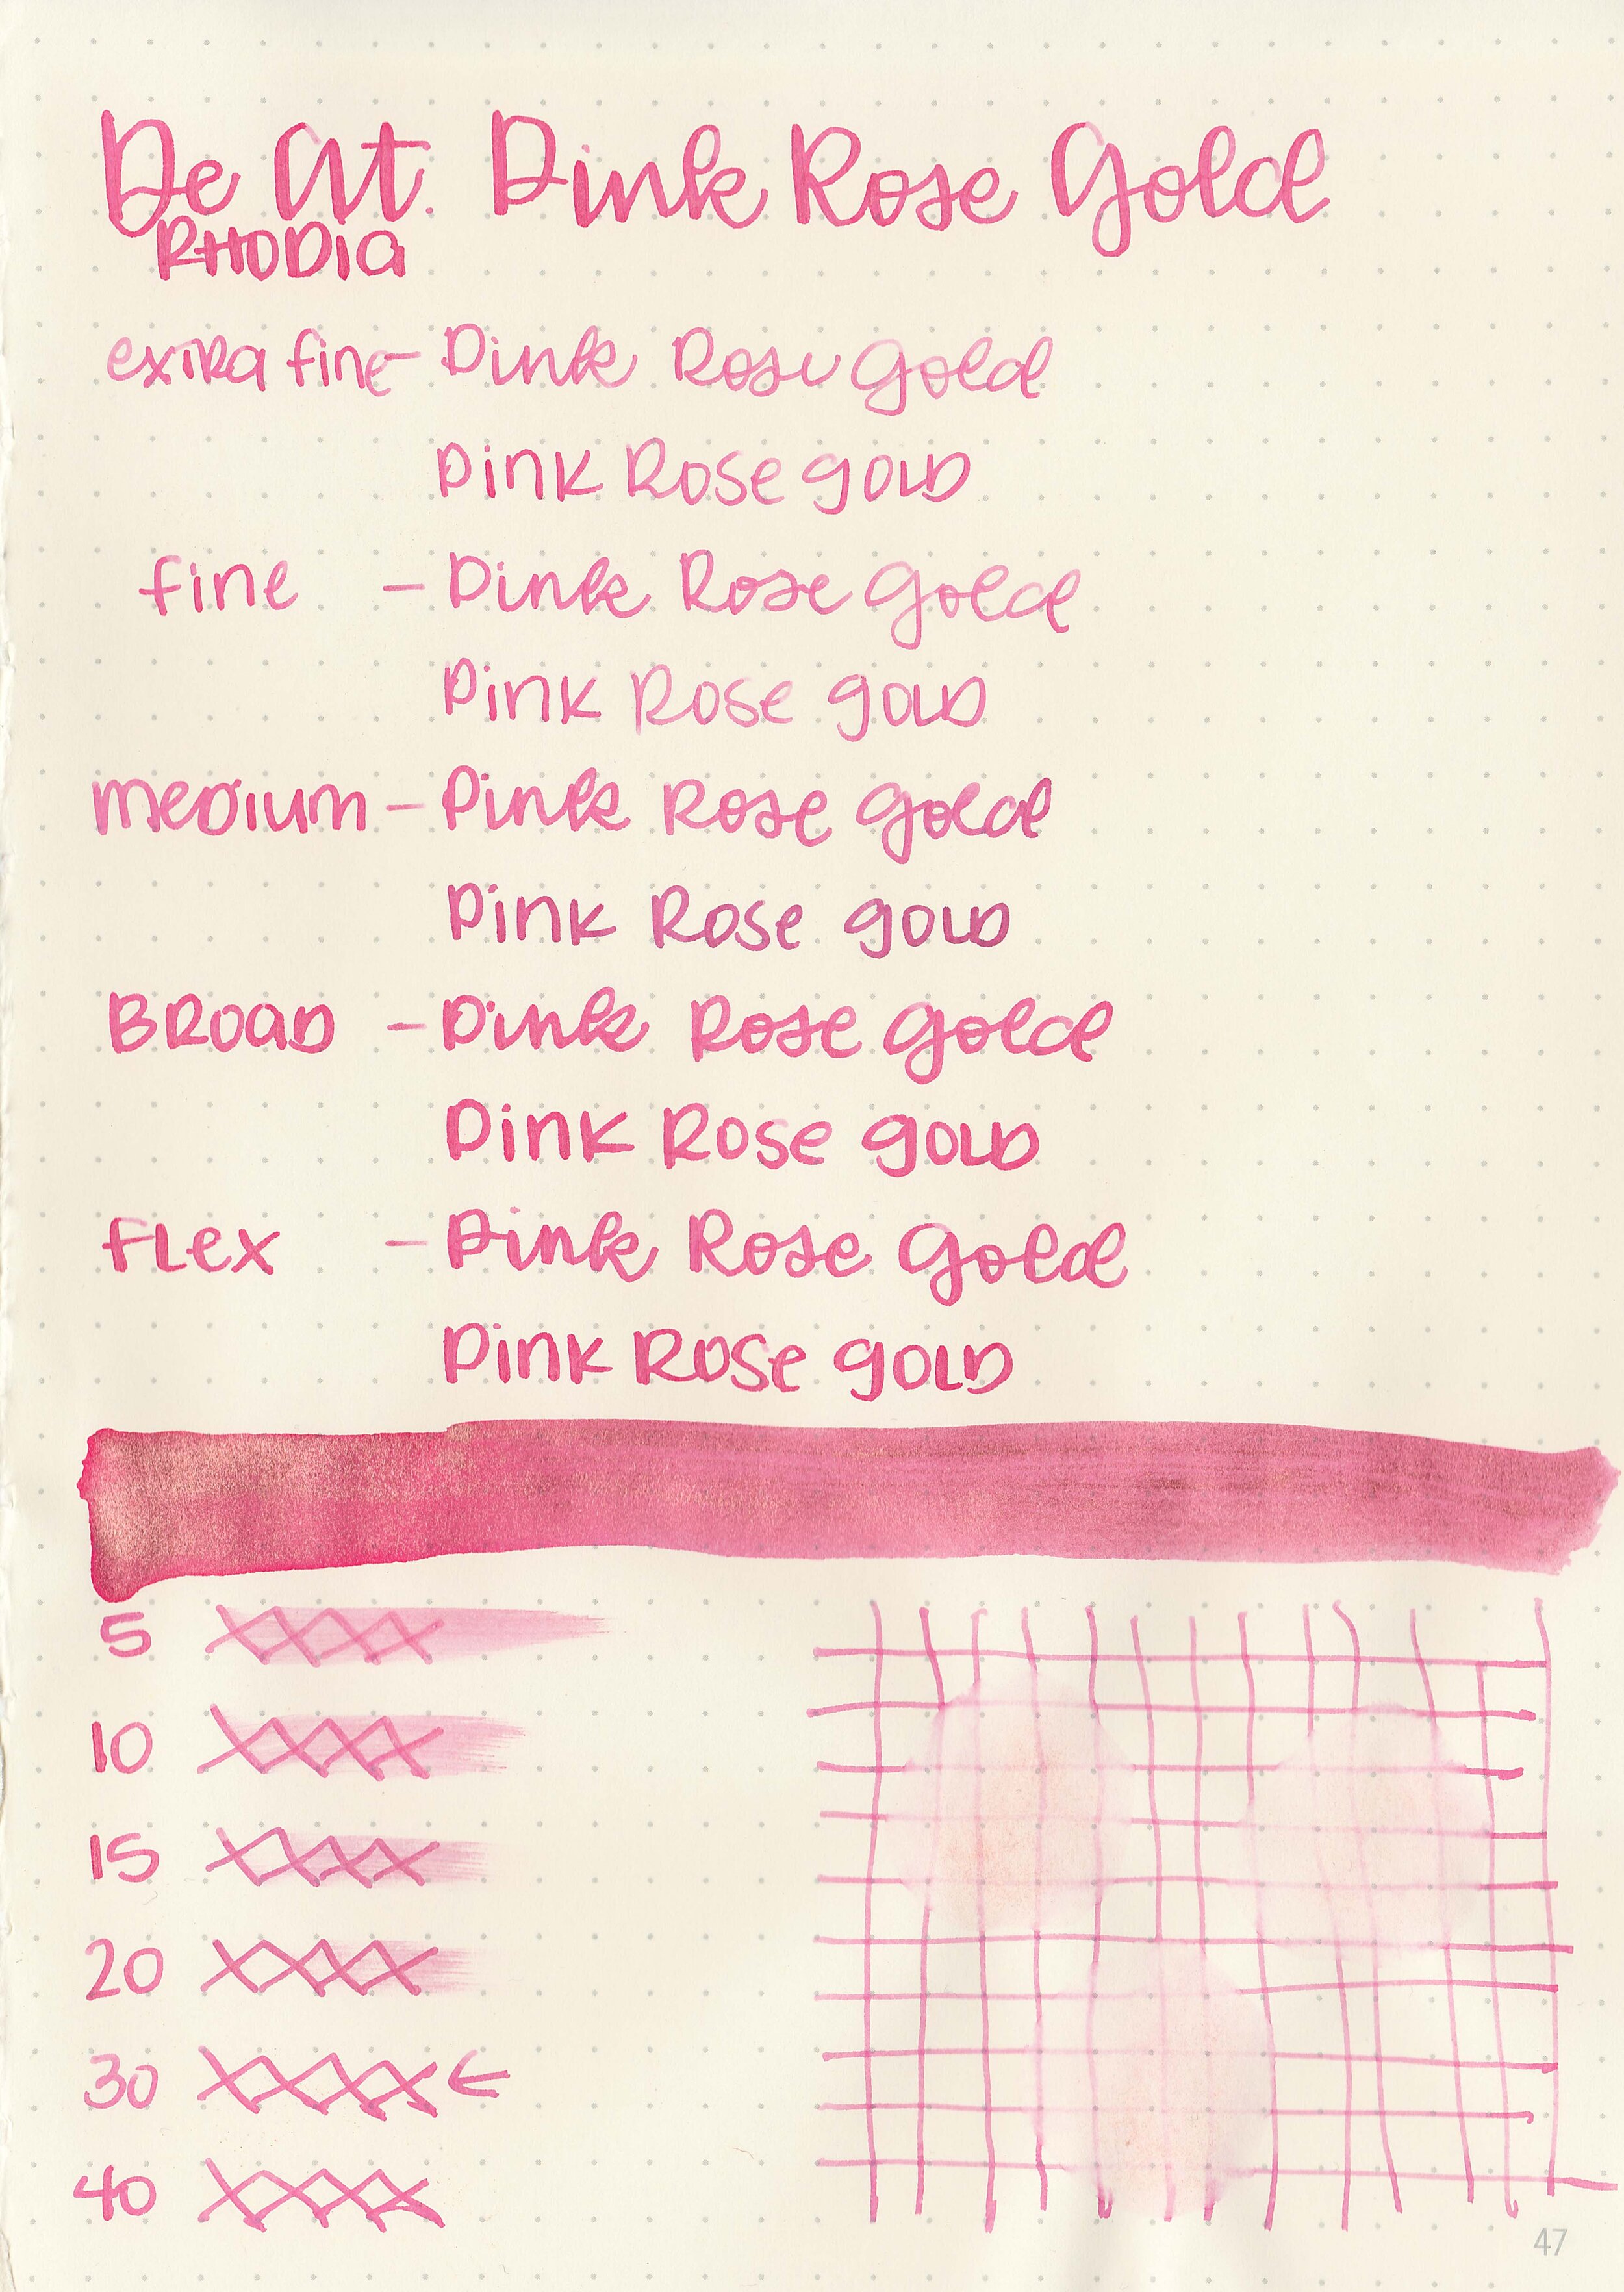 De At. Pink Rose Gold
RHODIA
extra fine - Pink Rose Gold
Pink Rose Gold
fine - Pink Rose Gold
Pink Rose Gold
medium - Pink Rose Gold
Pink Rose Gold
BROAD - Pink Rose Gold
Pink Rose Gold
FLex - Pink Rose Gold
Pink Rose Gold
5
10
15
20
30 ←
40
47